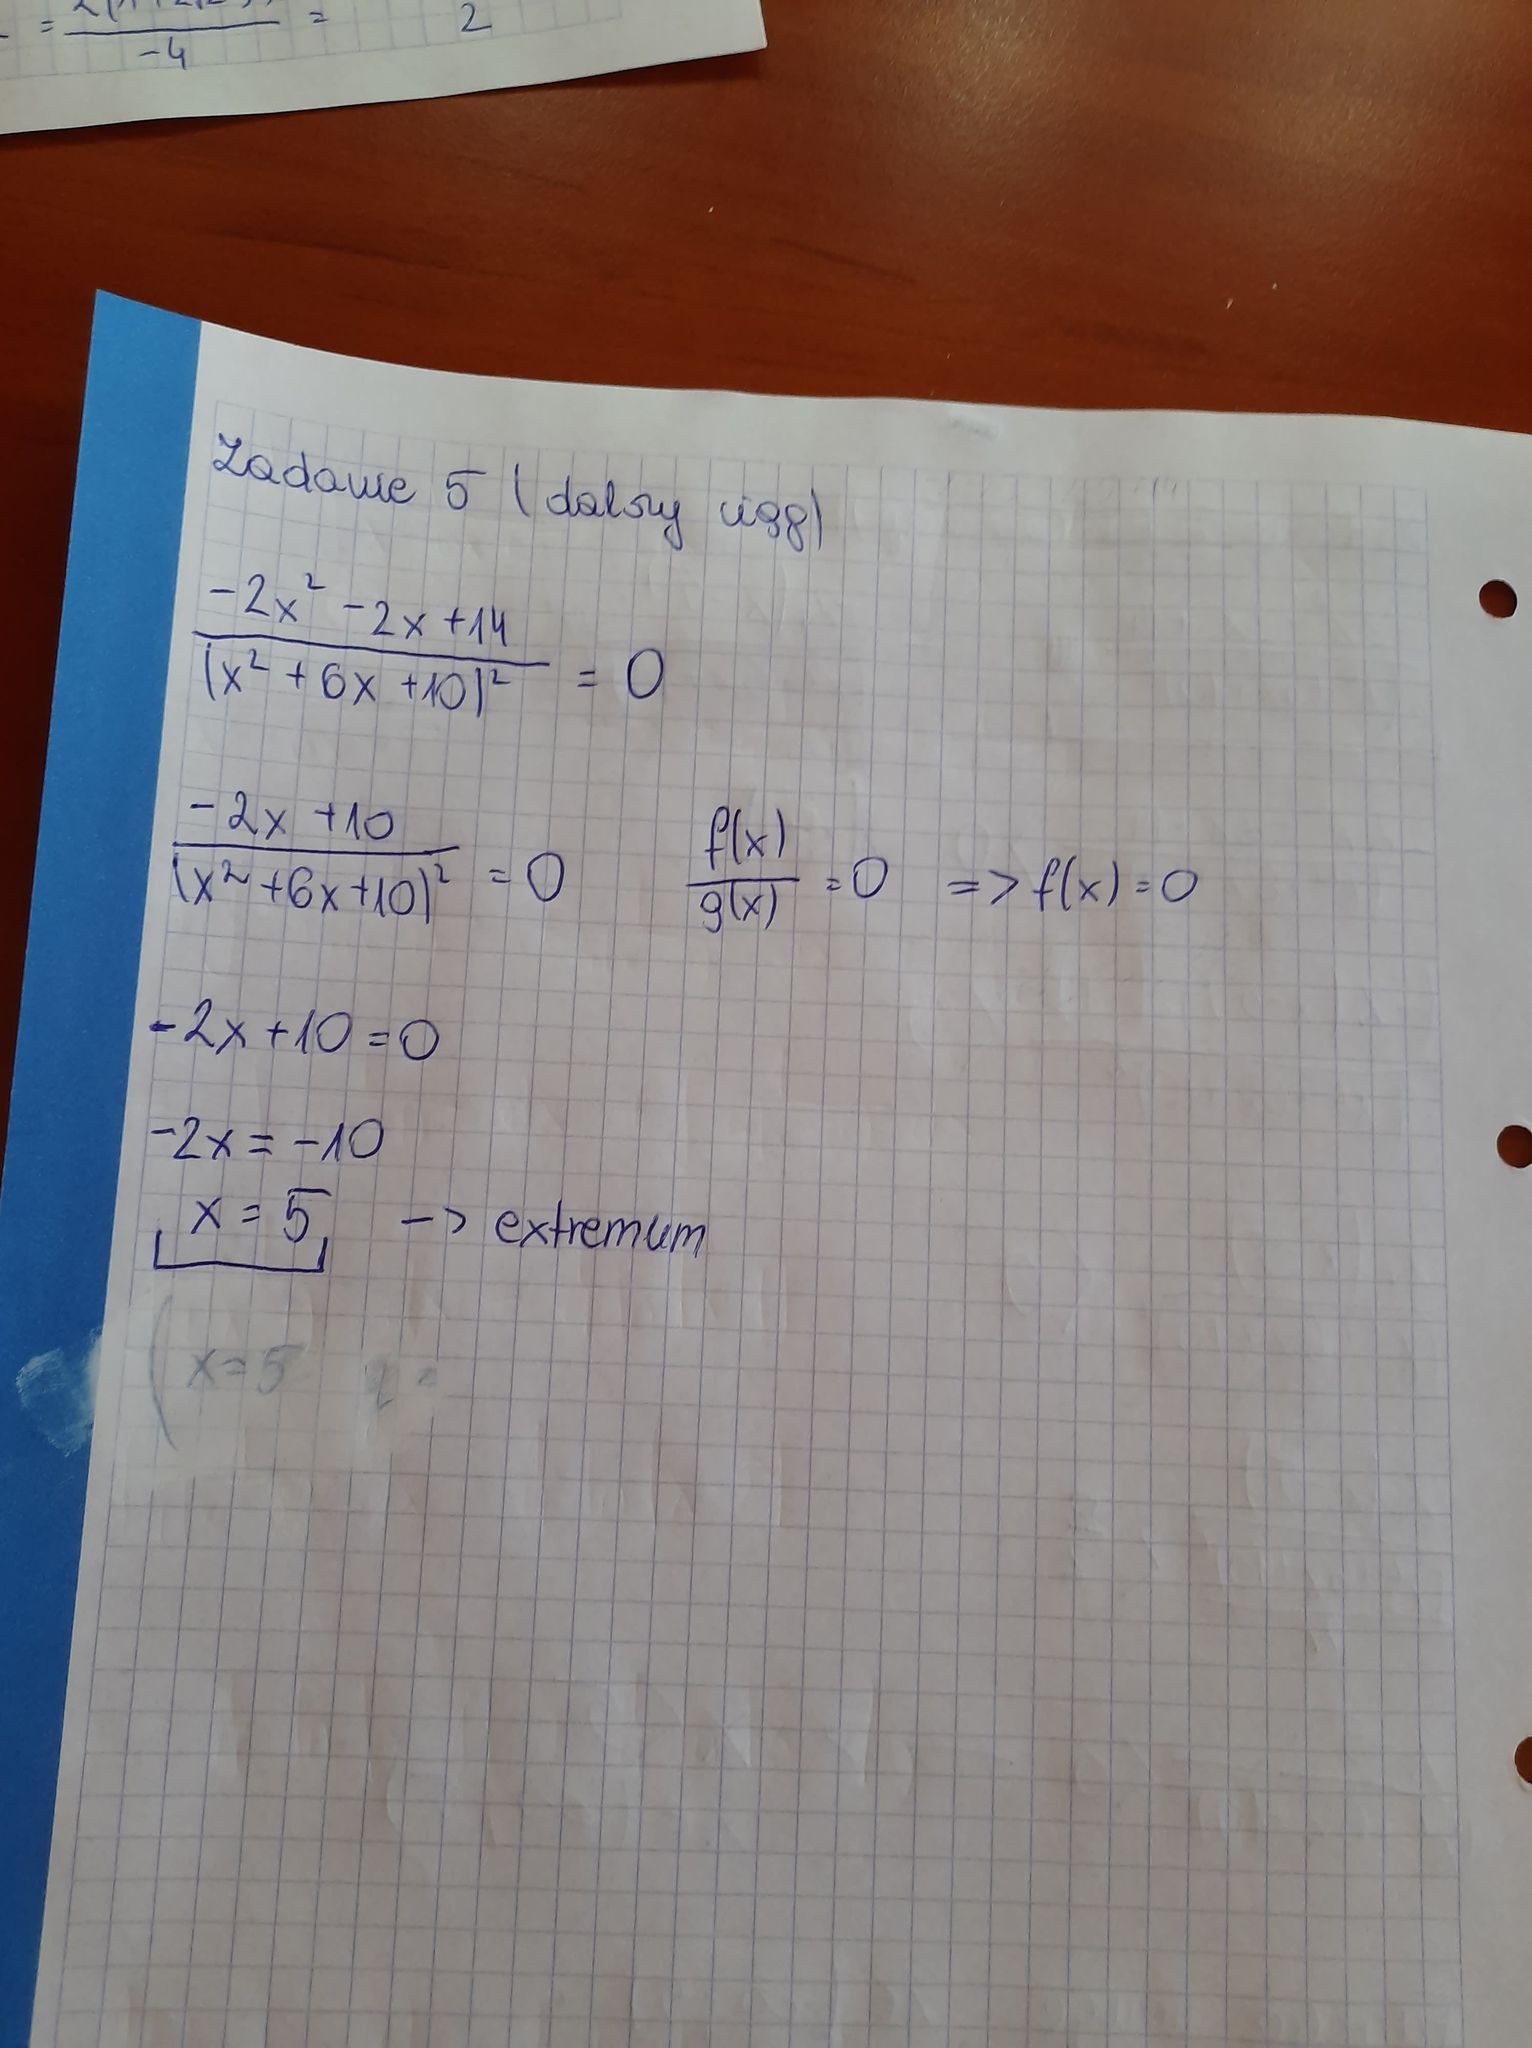 = -4 = 2
Zadanie 5 (dalszy ciąg)
-2x² -2x +14
(x² + 6x +10)² = 0
-2x +10
(x² +6x+10)² = 0 f(x) / g(x) = 0 => f(x) = 0
-2x +10 = 0
-2x = -10
x = 5 -> extremum
x = 5